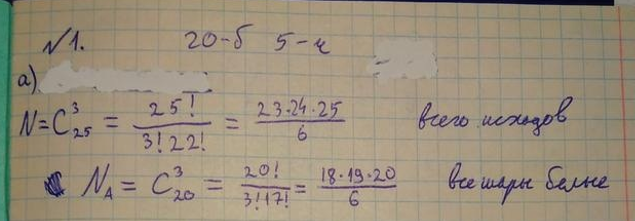 №1. 20-б 5-ч
а)
N = C₂₅³ = 25! / 3! 22! = 23·24·25 / 6 всего исходов
N_A = C₂₀³ = 20! / 3! 17! = 18·19·20 / 6 все шары белые